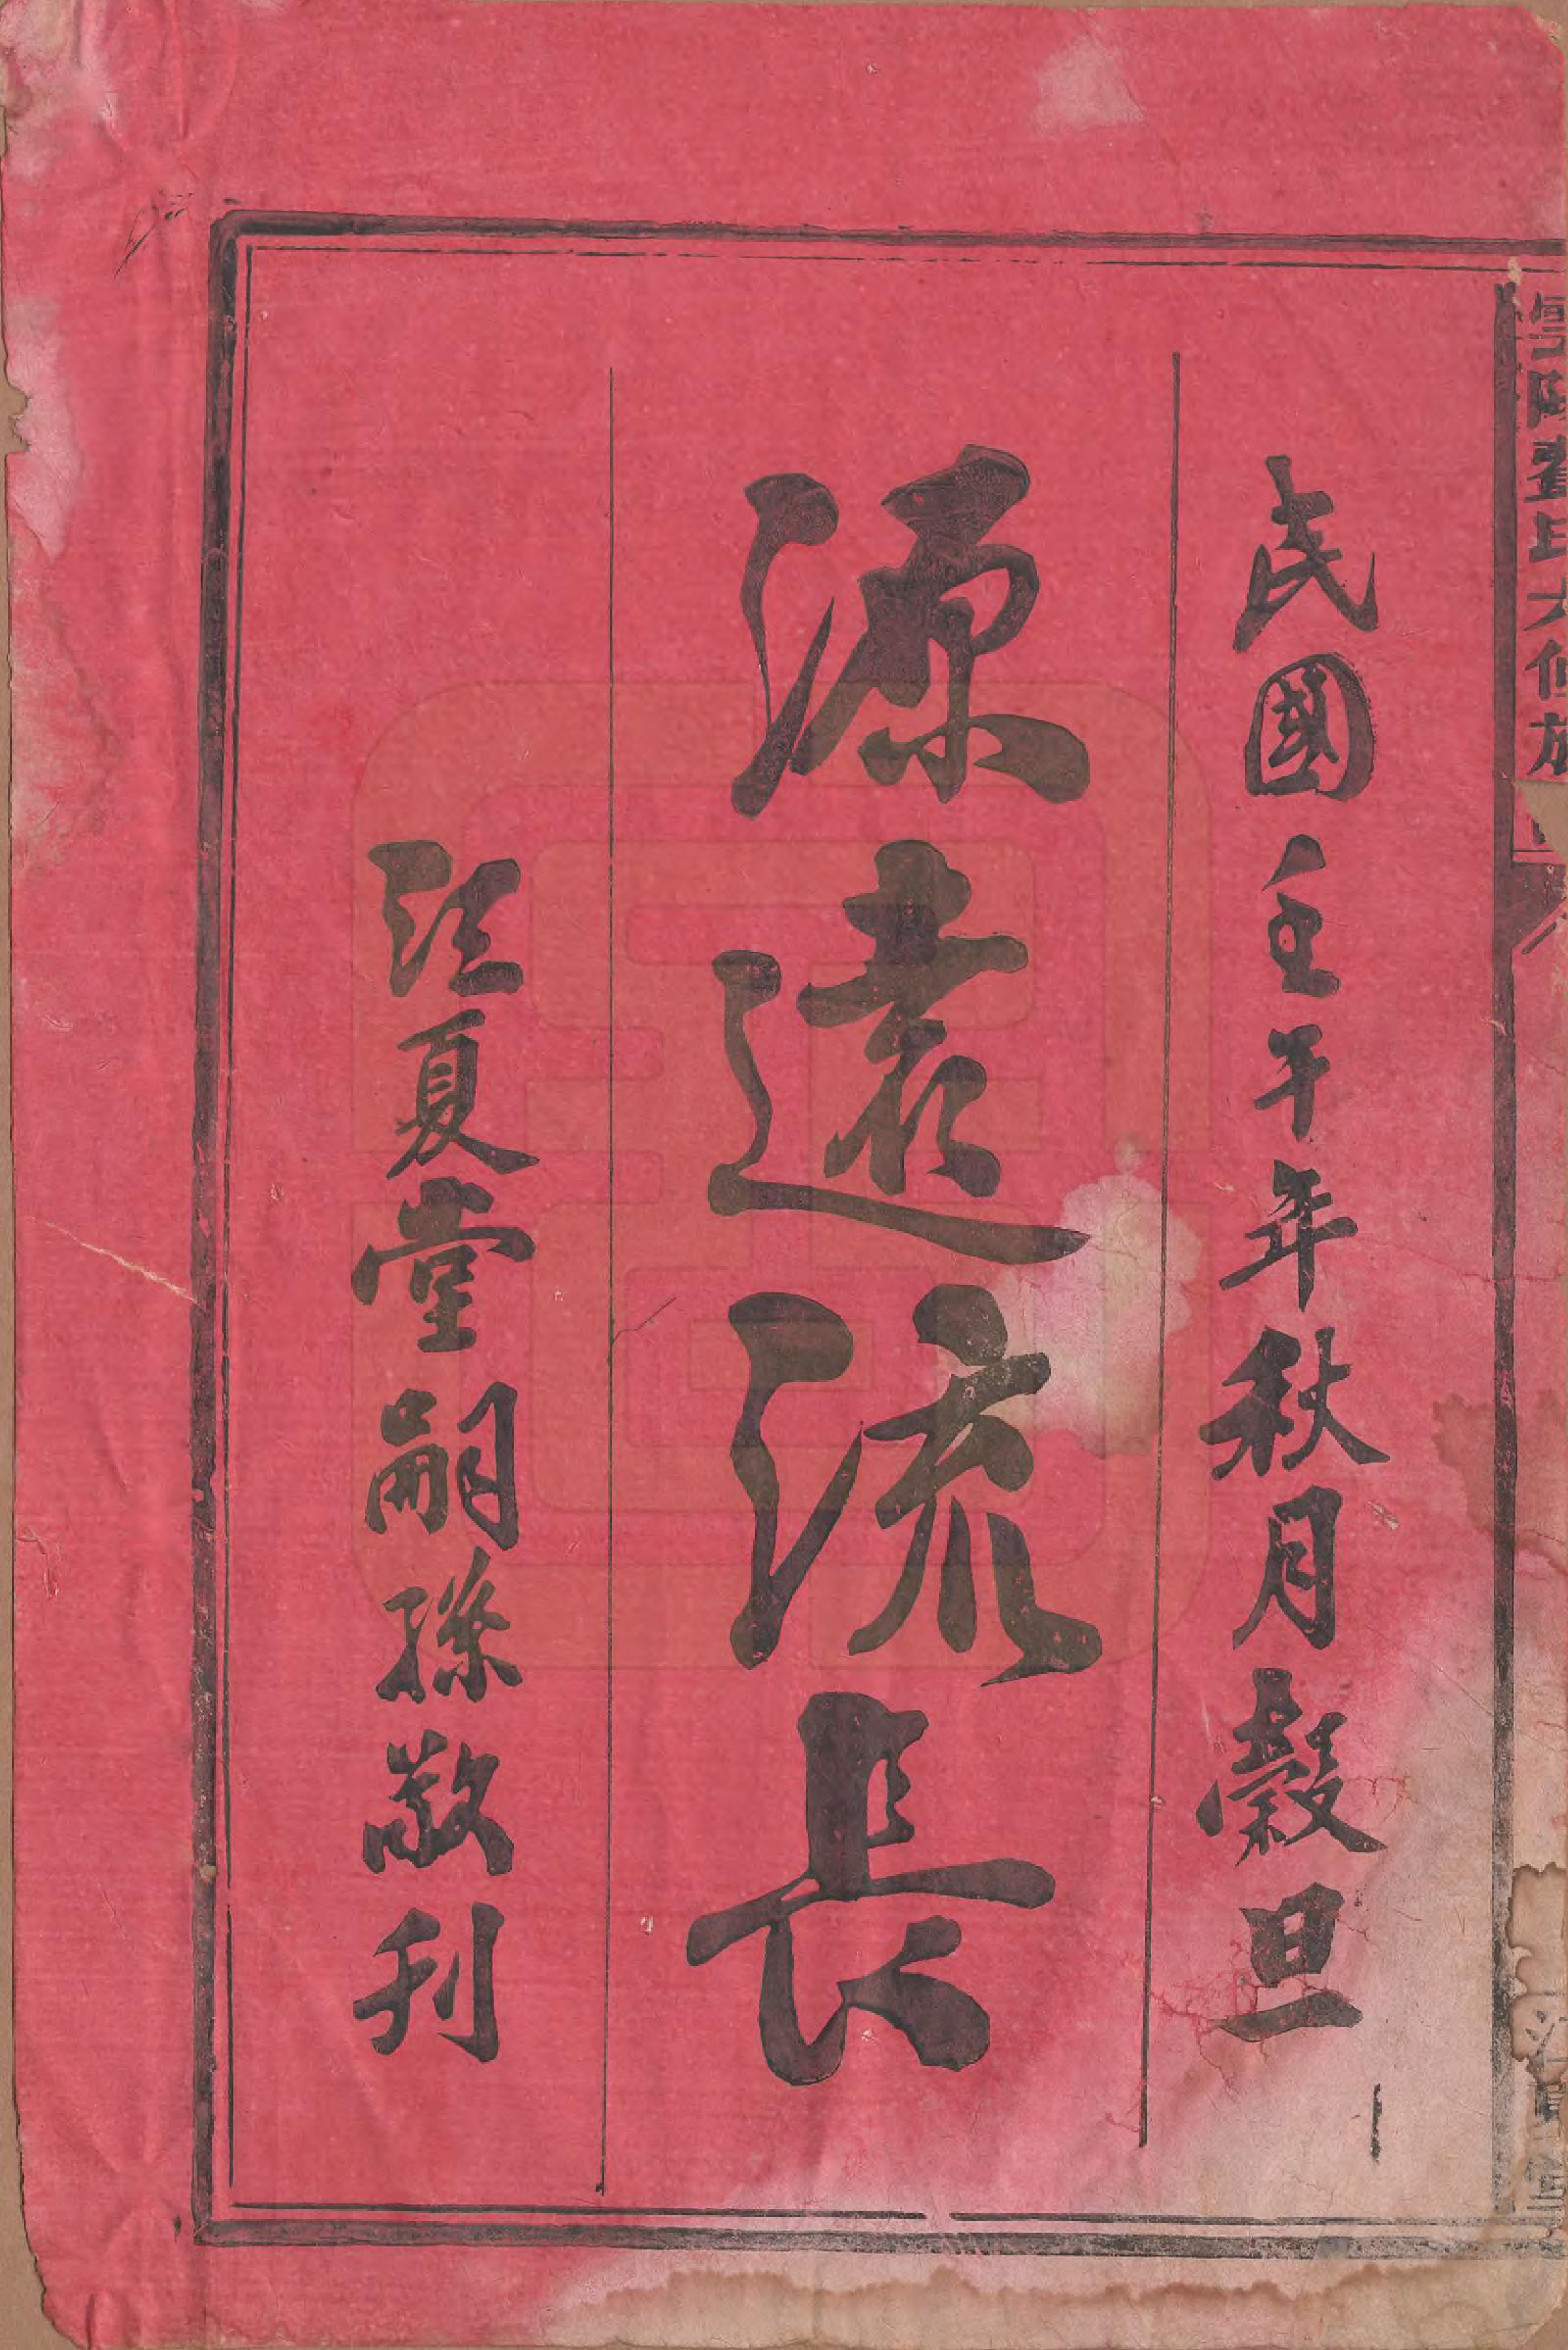 氏大修族
民國壬午年秋月穀旦
源遠流長
江夏堂嗣孫敬刊